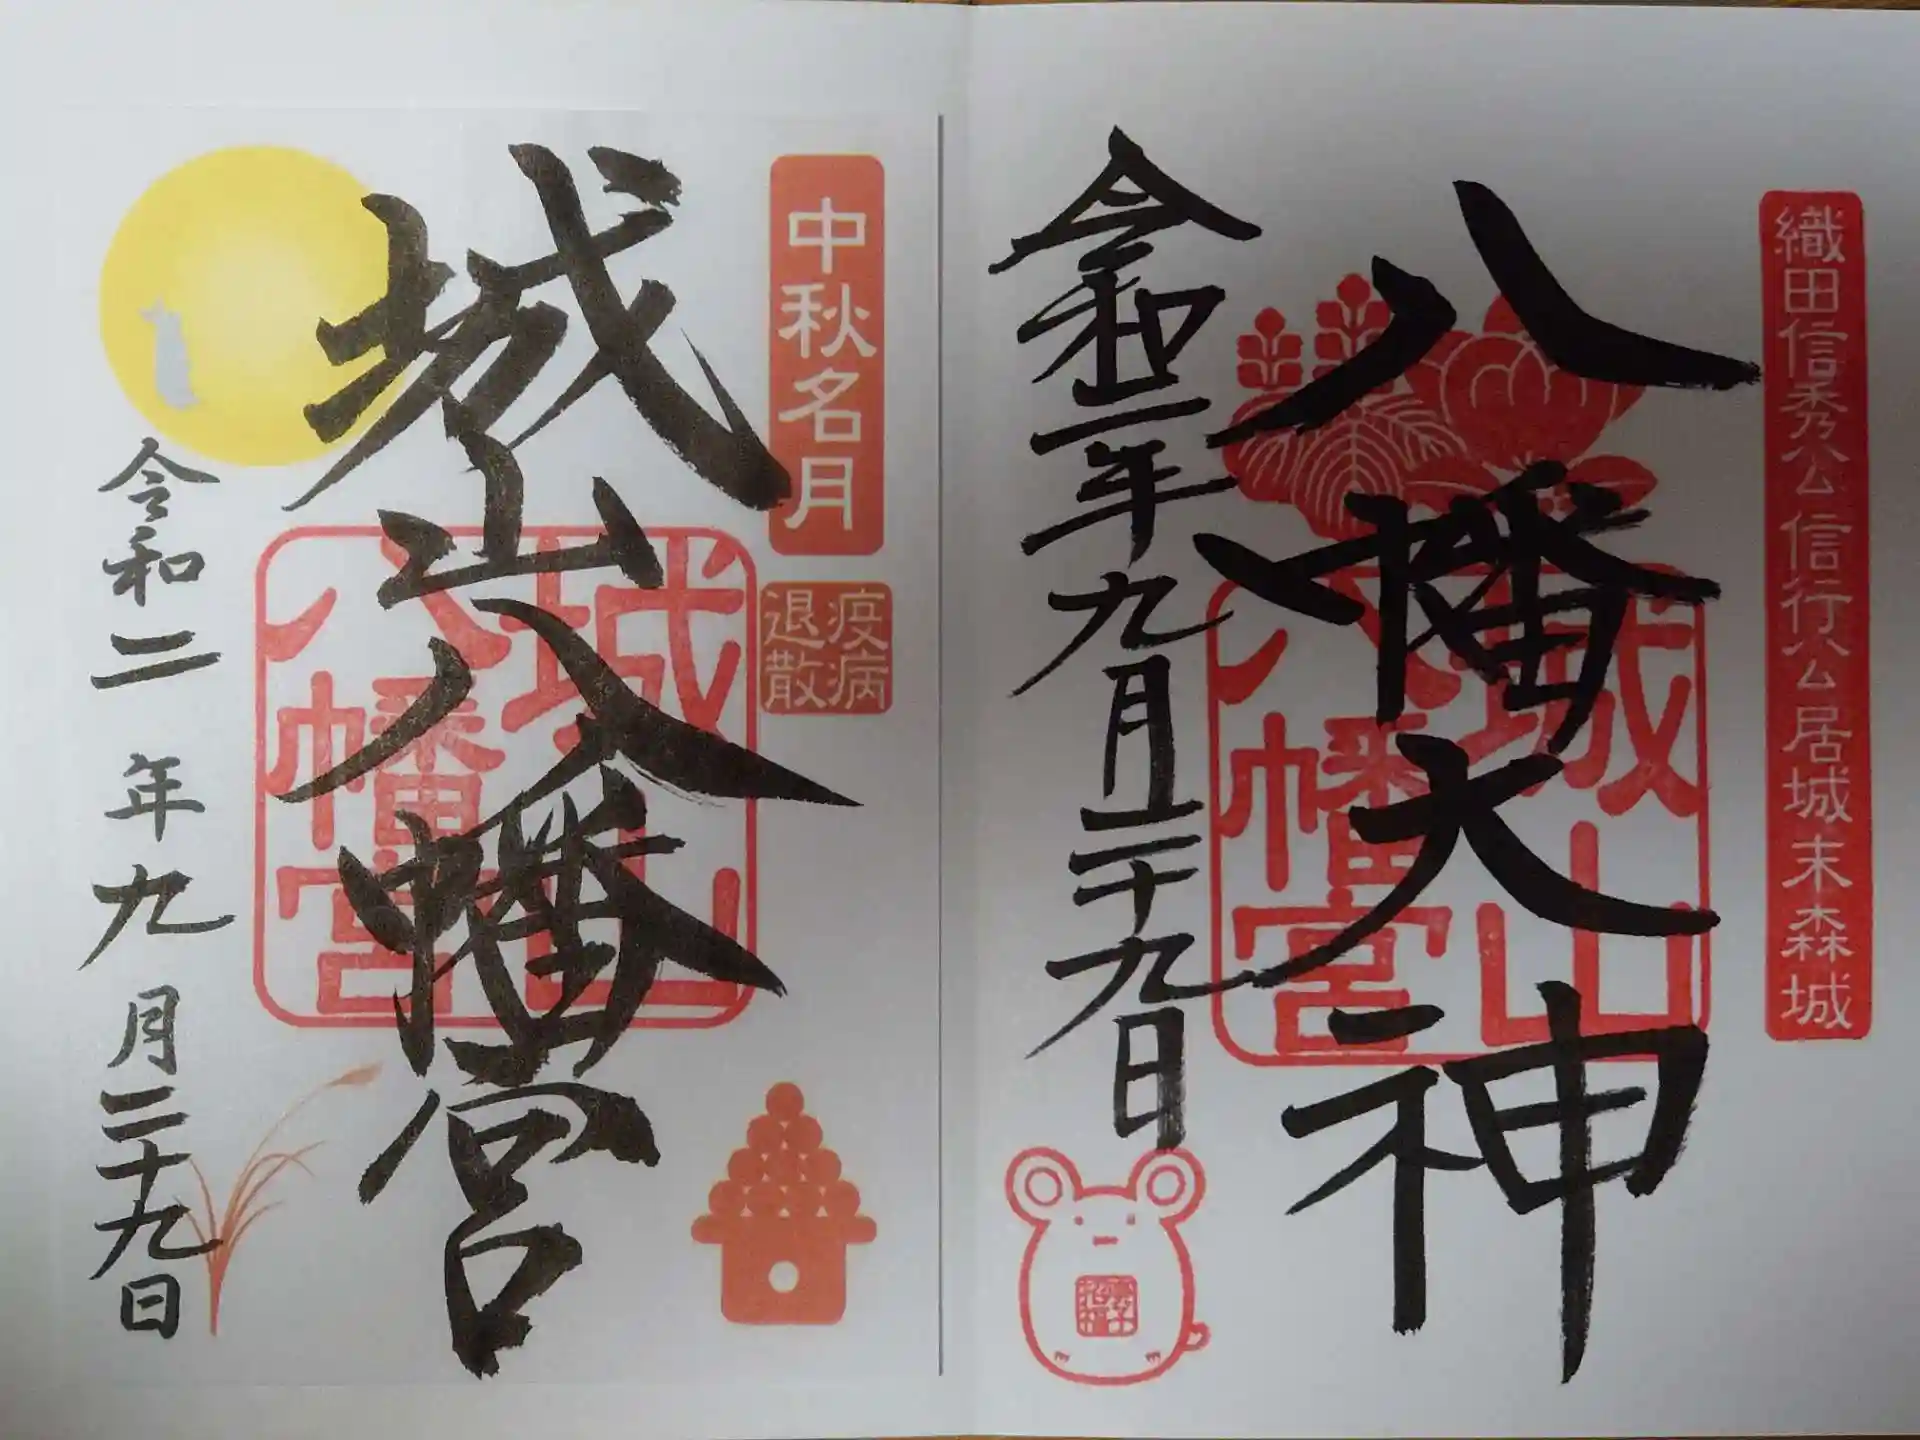 織田信秀公信行公居城末森城
八幡大神
城山
八幡宮
令和二年九月二十九日
中秋名月
疫病
退散
城山八幡宮
城山
八幡宮
令和二年九月二十九日